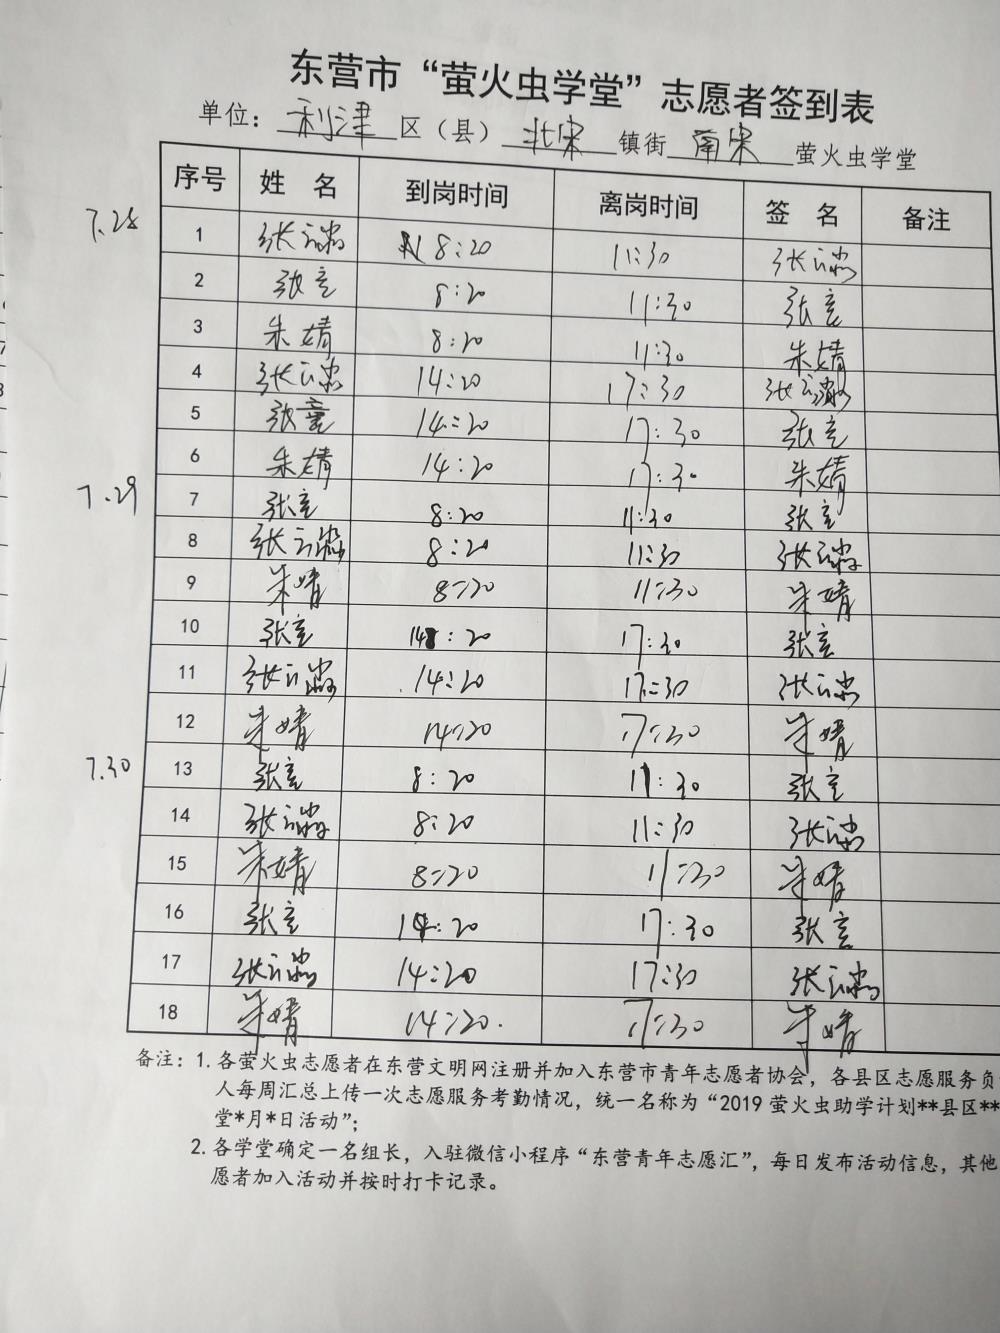 东营市“萤火虫学堂”志愿者签到表
单位：利津区（县）北宋镇街南宋萤火虫学堂
序号 姓 名 到岗时间 离岗时间 签 名 备注
7.28
1 张 8:20 11:30 张
2 张 8:20 11:30 张
3 朱婧 8:20 11:30 朱婧
4 张 14:20 17:30 张
5 张 14:20 17:30 张
6 朱婧 14:20 17:30 朱婧
7.29
7 张 8:20 11:30 张
8 张 8:20 11:30 张
9 朱婧 8:20 11:30 朱婧
10 张 14:20 17:30 张
11 张 14:20 17:30 张
12 朱婧 14:20 17:30 朱婧
7.30
13 张 8:20 11:30 张
14 张 8:20 11:30 张
15 朱婧 8:20 11:30 朱婧
16 张 14:20 17:30 张
17 张 14:20 17:30 张
18 朱婧 14:20. 17:30 朱婧
备注：1. 各萤火虫志愿者在东营文明网注册并加入东营市青年志愿者协会，各县区志愿服务负
人每周汇总上传一次志愿服务考勤情况，统一名称为“2019萤火虫助学计划**县区**
堂*月*日活动”；
2. 各学堂确定一名组长，入驻微信小程序“东营青年志愿汇”，每日发布活动信息，其他
愿者加入活动并按时打卡记录。